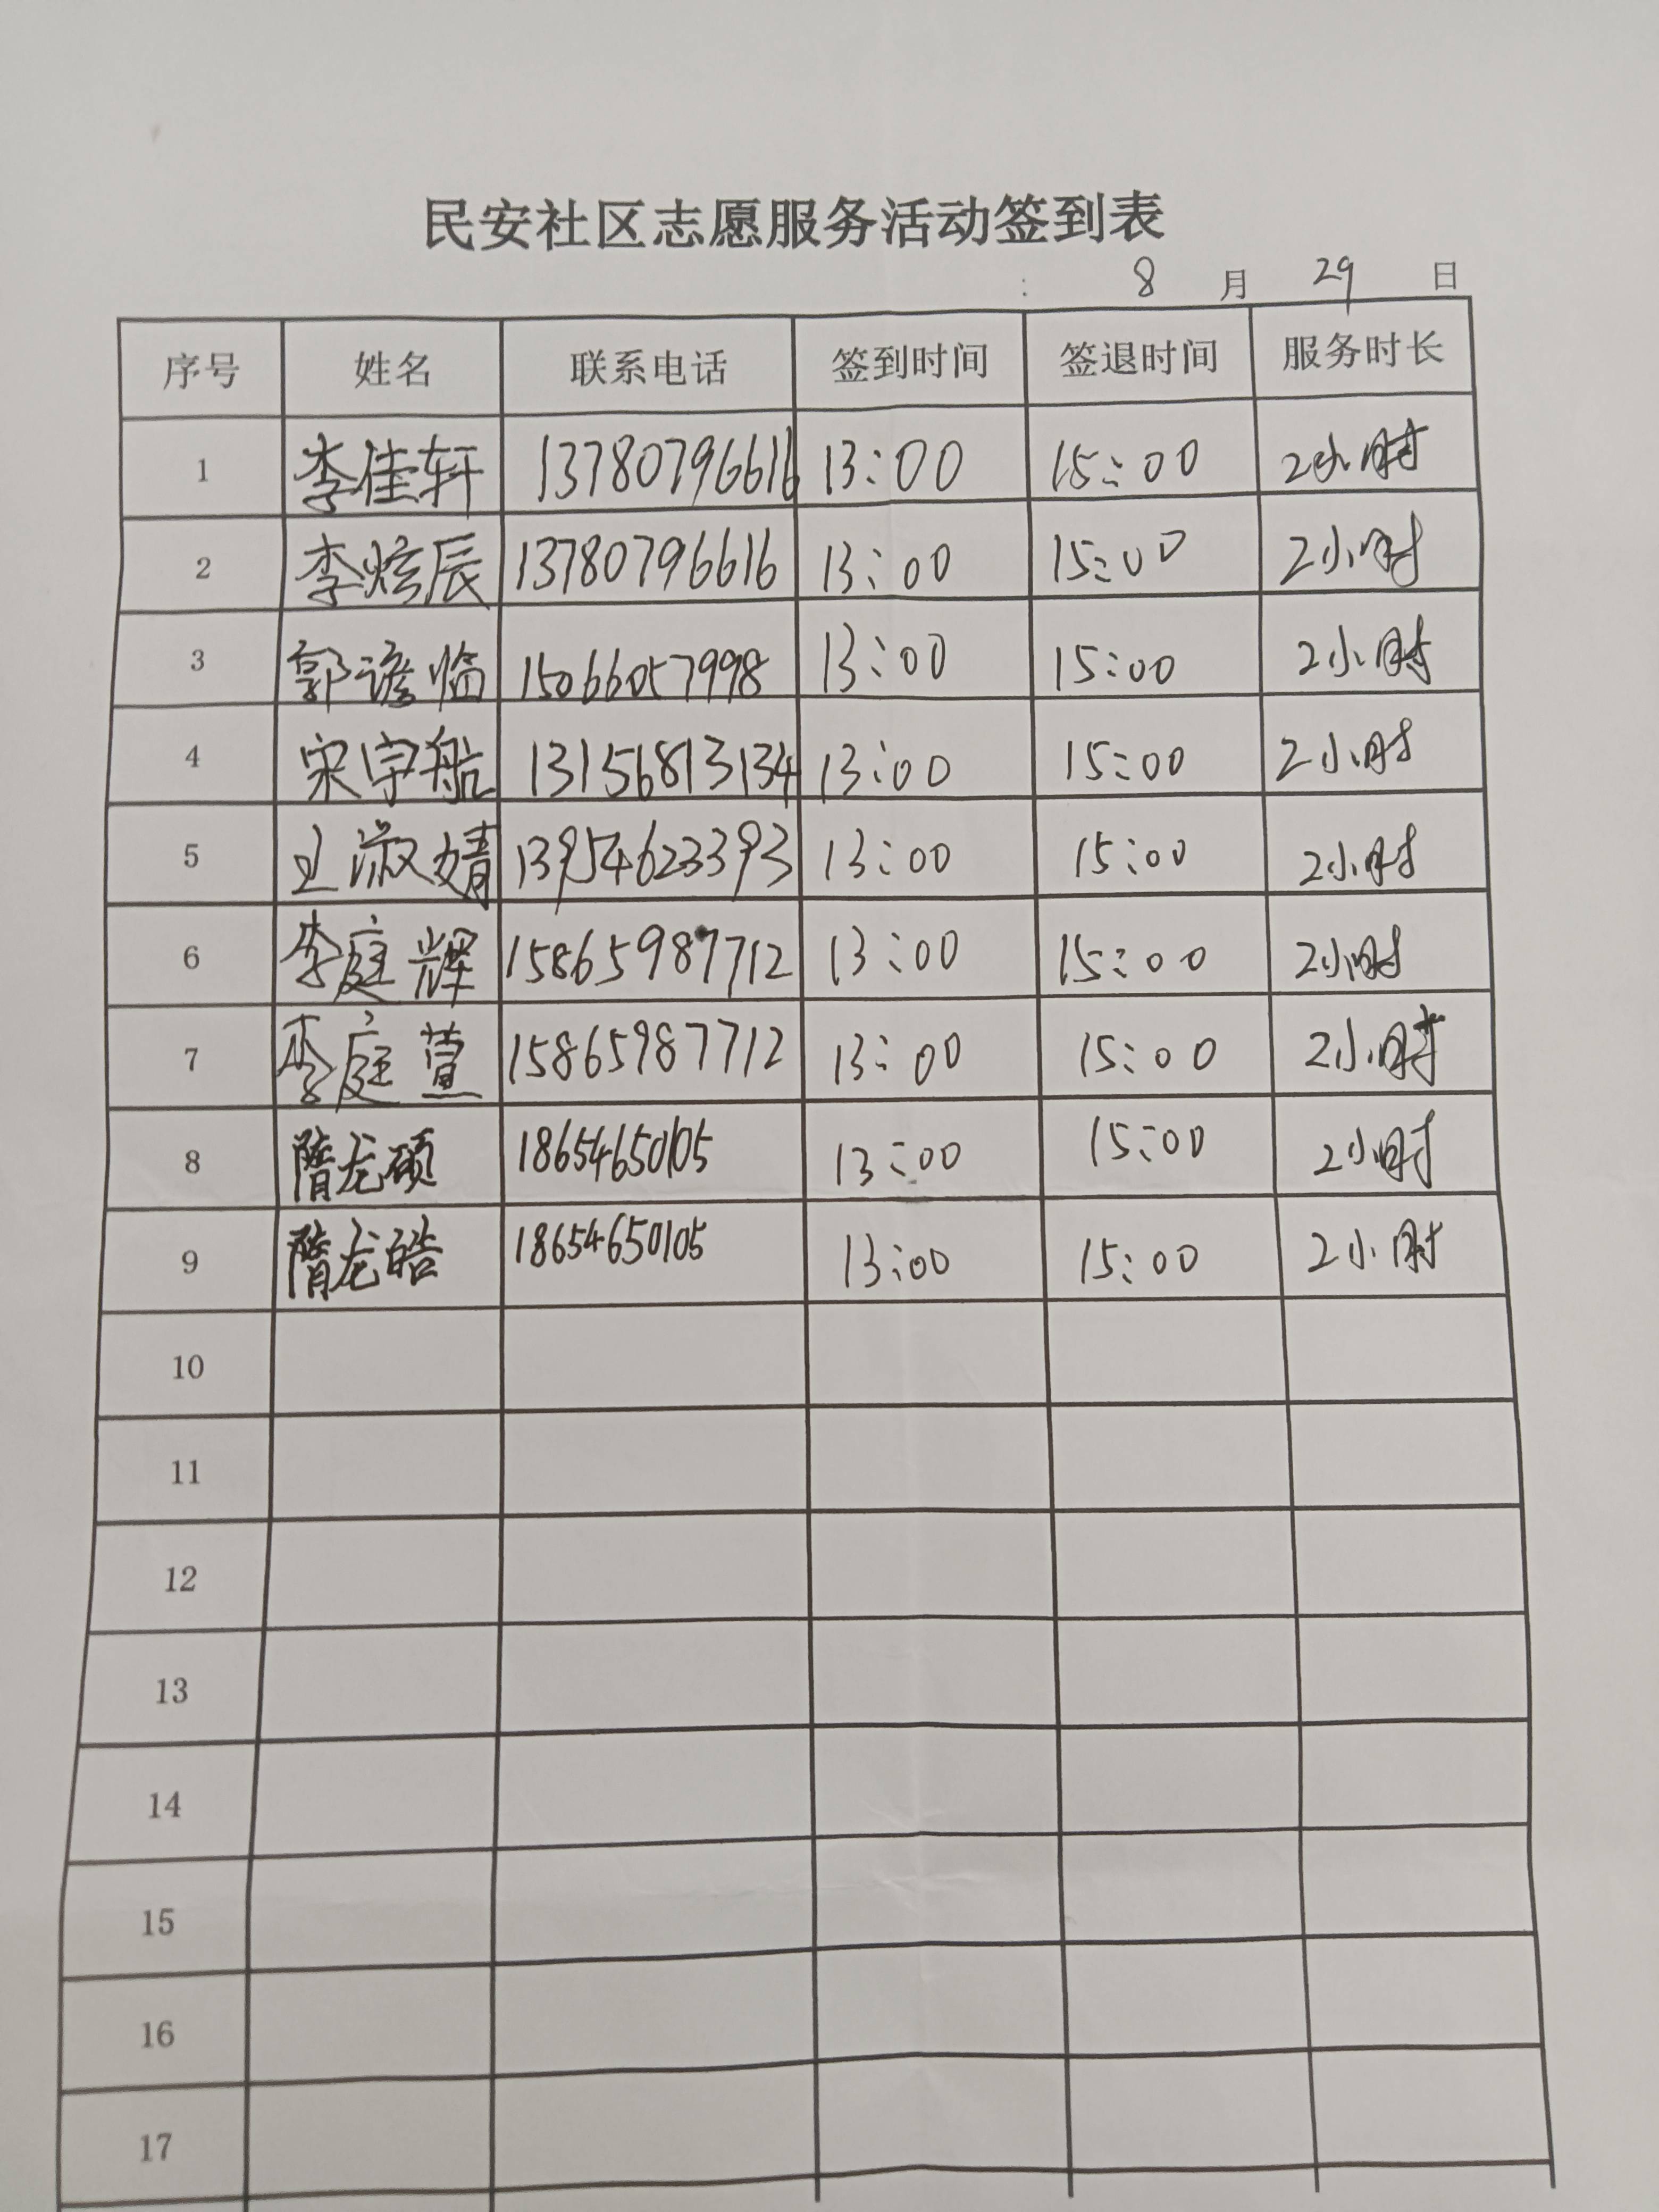 民安社区志愿服务活动签到表
: 8 月 29 日
序号 姓名 联系电话 签到时间 签退时间 服务时长
1 李佳轩 13780796616 13:00 15:00 2小时
2 李炫辰 13780796616 13:00 15:00 2小时
3 郭谵临 15066057998 13:00 15:00 2小时
4 宋宇航 13156813134 13:00 15:00 2小时
5 王淑婧 13954623393 13:00 15:00 2小时
6 李庭辉 15865987712 13:00 15:00 2小时
7 李庭萱 15865987712 13:00 15:00 2小时
8 隋龙硕 18654650105 13:00 15:00 2小时
9 隋龙皓 18654650105 13:00 15:00 2小时
10
11
12
13
14
15
16
17